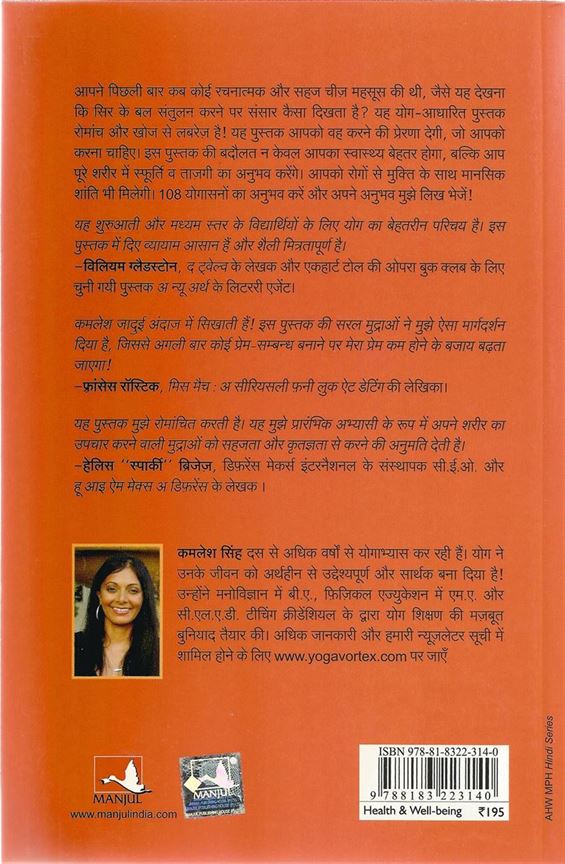 आपने पिछली बार कब कोई रचनात्मक और सहज चीज़ महसूस की थी, जैसे यह देखना
कि सिर के बल संतुलन करने पर संसार कैसा दिखता है? यह योग-आधारित पुस्तक
रोमांच और खोज से लबरेज़ है! यह पुस्तक आपको वह करने की प्रेरणा देगी, जो आपको
करना चाहिए। इस पुस्तक की बदौलत न केवल आपका स्वास्थ्य बेहतर होगा, बल्कि आप
पूरे शरीर में स्फूर्ति व ताजगी का अनुभव करेंगे। आपको रोगों से मुक्ति के साथ मानसिक
शांति भी मिलेगी। 108 योगासनों का अनुभव करें और अपने अनुभव मुझे लिख भेजें!
यह शुरुआती और मध्यम स्तर के विद्यार्थियों के लिए योग का बेहतरीन परिचय है। इस
पुस्तक में दिए व्यायाम आसान हैं और शैली मित्रतापूर्ण है।
–विलियम ग्लैडस्टोन, द ट्वेल्व के लेखक और एकहार्ट टोल की ओपरा बुक क्लब के लिए
चुनी गयी पुस्तक अ न्यू अर्थ के लिटररी एजेंट।
कमलेश जादुई अंदाज में सिखाती हैं! इस पुस्तक की सरल मुद्राओं ने मुझे ऐसा मार्गदर्शन
दिया है, जिससे अगली बार कोई प्रेम-सम्बन्ध बनाने पर मेरा प्रेम कम होने के बजाय बढ़ता
जाएगा!
–फ्रांसेस रॉस्टिक, मिस मैच : अ सीरियसली फ़नी लुक ऐट डेटिंग की लेखिका।
यह पुस्तक मुझे रोमांचित करती है। यह मुझे प्रारंभिक अभ्यासी के रूप में अपने शरीर का
उपचार करने वाली मुद्राओं को सहजता और कृतज्ञता से करने की अनुमति देती है।
–हेलिस ‘‘स्पार्की’’ ब्रिजेज, डिफ़रेंस मेकर्स इंटरनैशनल के संस्थापक सी.ई.ओ. और
हू आइ ऐम मेक्स अ डिफ़रेंस के लेखक ।
कमलेश सिंह दस से अधिक वर्षों से योगाभ्यास कर रही हैं। योग ने
उनके जीवन को अर्थहीन से उद्देश्यपूर्ण और सार्थक बना दिया है!
उन्होंने मनोविज्ञान में बी.ए., फ़िज़िकल एज्युकेशन में एम.ए. और
सी.एल.ए.डी. टीचिंग क्रीडेंशियल के द्वारा योग शिक्षण की मज़बूत
बुनियाद तैयार की। अधिक जानकारी और हमारी न्यूज़लेटर सूची में
शामिल होने के लिए www.yogavortex.com पर जाएँ
MANJUL
www.manjulindia.com
MANJUL
ISBN 978-81-8322-314-0
9 788183 223140
Health & Well-being ₹195
AHW MPH Hindi Series